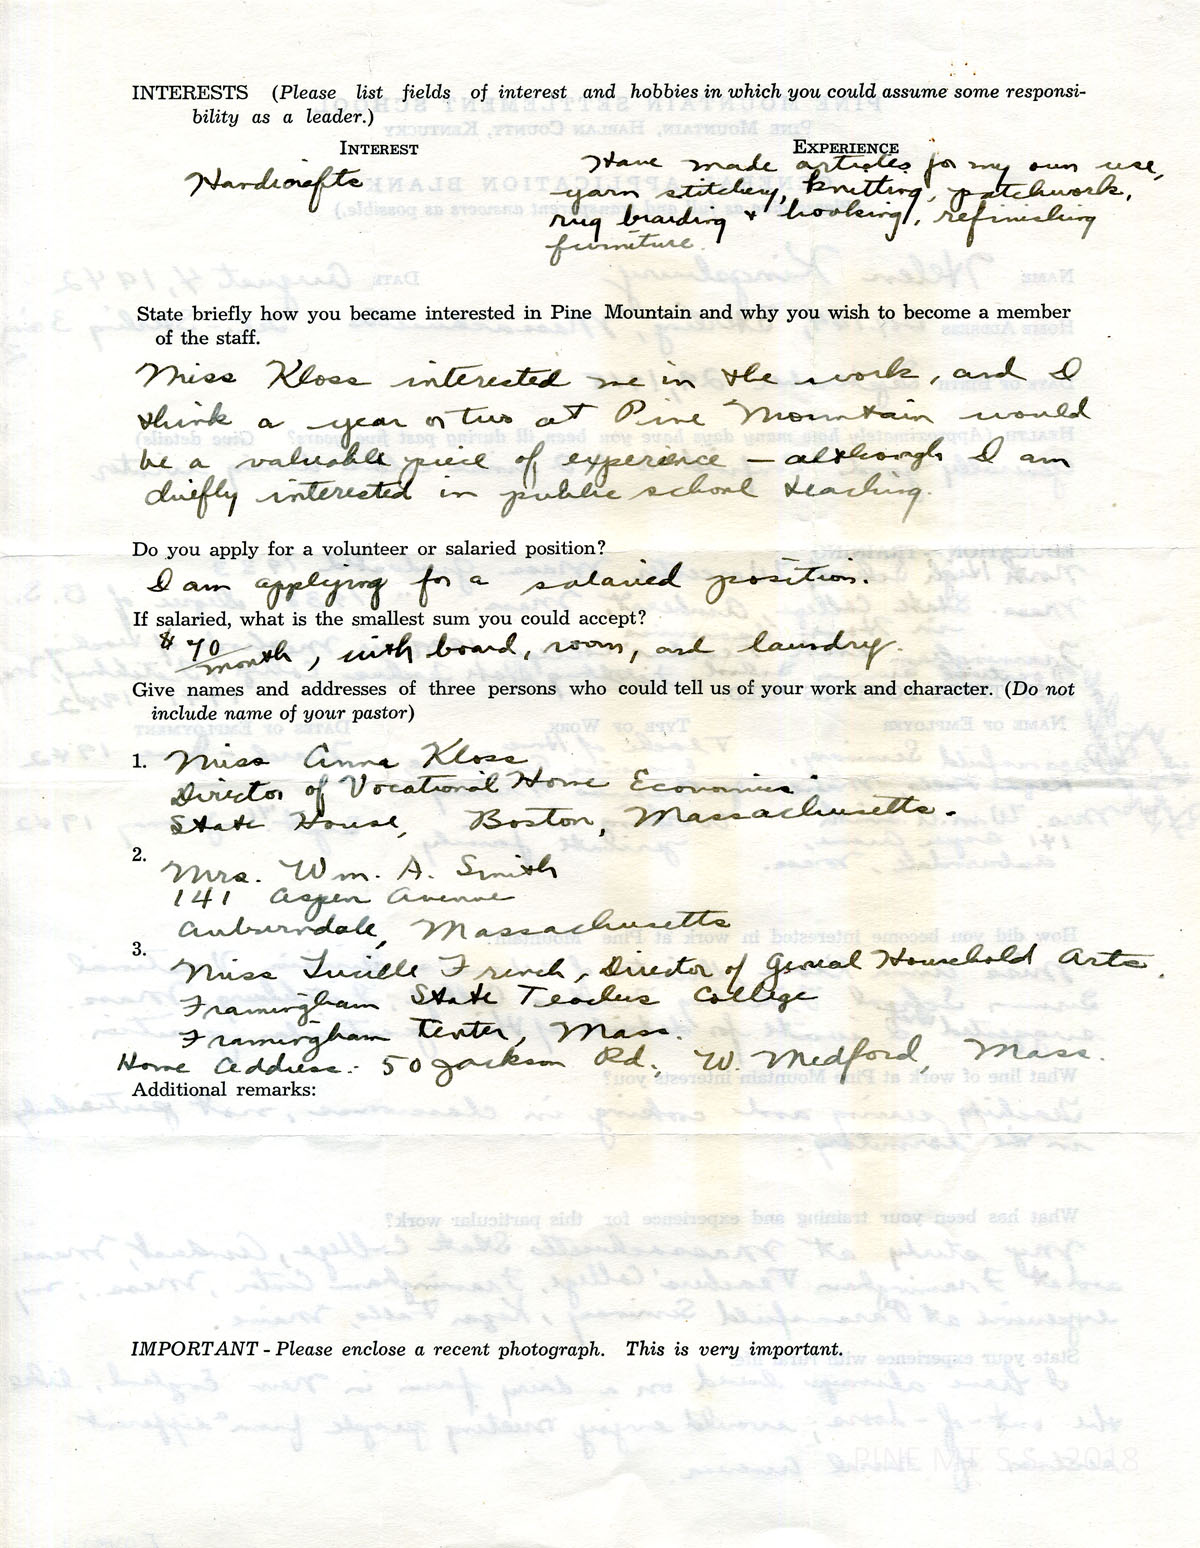 INTERESTS (Please list fields of interest and hobbies in which you could assume some responsi-
bility as a leader.)
INTEREST EXPERIENCE
Handicrafts
Have made articles for my own use,
yarn stitchery, knitting, patchwork,
rug braiding + hooking, refinishing
furniture.
State briefly how you became interested in Pine Mountain and why you wish to become a member
of the staff.
Miss Kloss interested me in the work, and I
think a year or two at Pine Mountain would
be a valuable piece of experience — although I am
chiefly interested in public school teaching.
Do you apply for a volunteer or salaried position?
I am applying for a salaried position.
If salaried, what is the smallest sum you could accept?
$70/month, with board, room, and laundry.
Give names and addresses of three persons who could tell us of your work and character. (Do not
include name of your pastor)
1. Miss Anna Kloss
Director of Vocational Home Economics
State House, Boston, Massachusetts.
2. Mrs. Wm. A. Smith
141 Aspen Avenue
Auburndale, Massachusetts
3. Miss Lucille French, Director of General Household Arts.
Framingham State Teachers College
Framingham Center, Mass.
Home Address: 50 Jackson Rd., W. Medford, Mass.
Additional remarks:
IMPORTANT - Please enclose a recent photograph. This is very important.
PINE MT. S.S. 2018